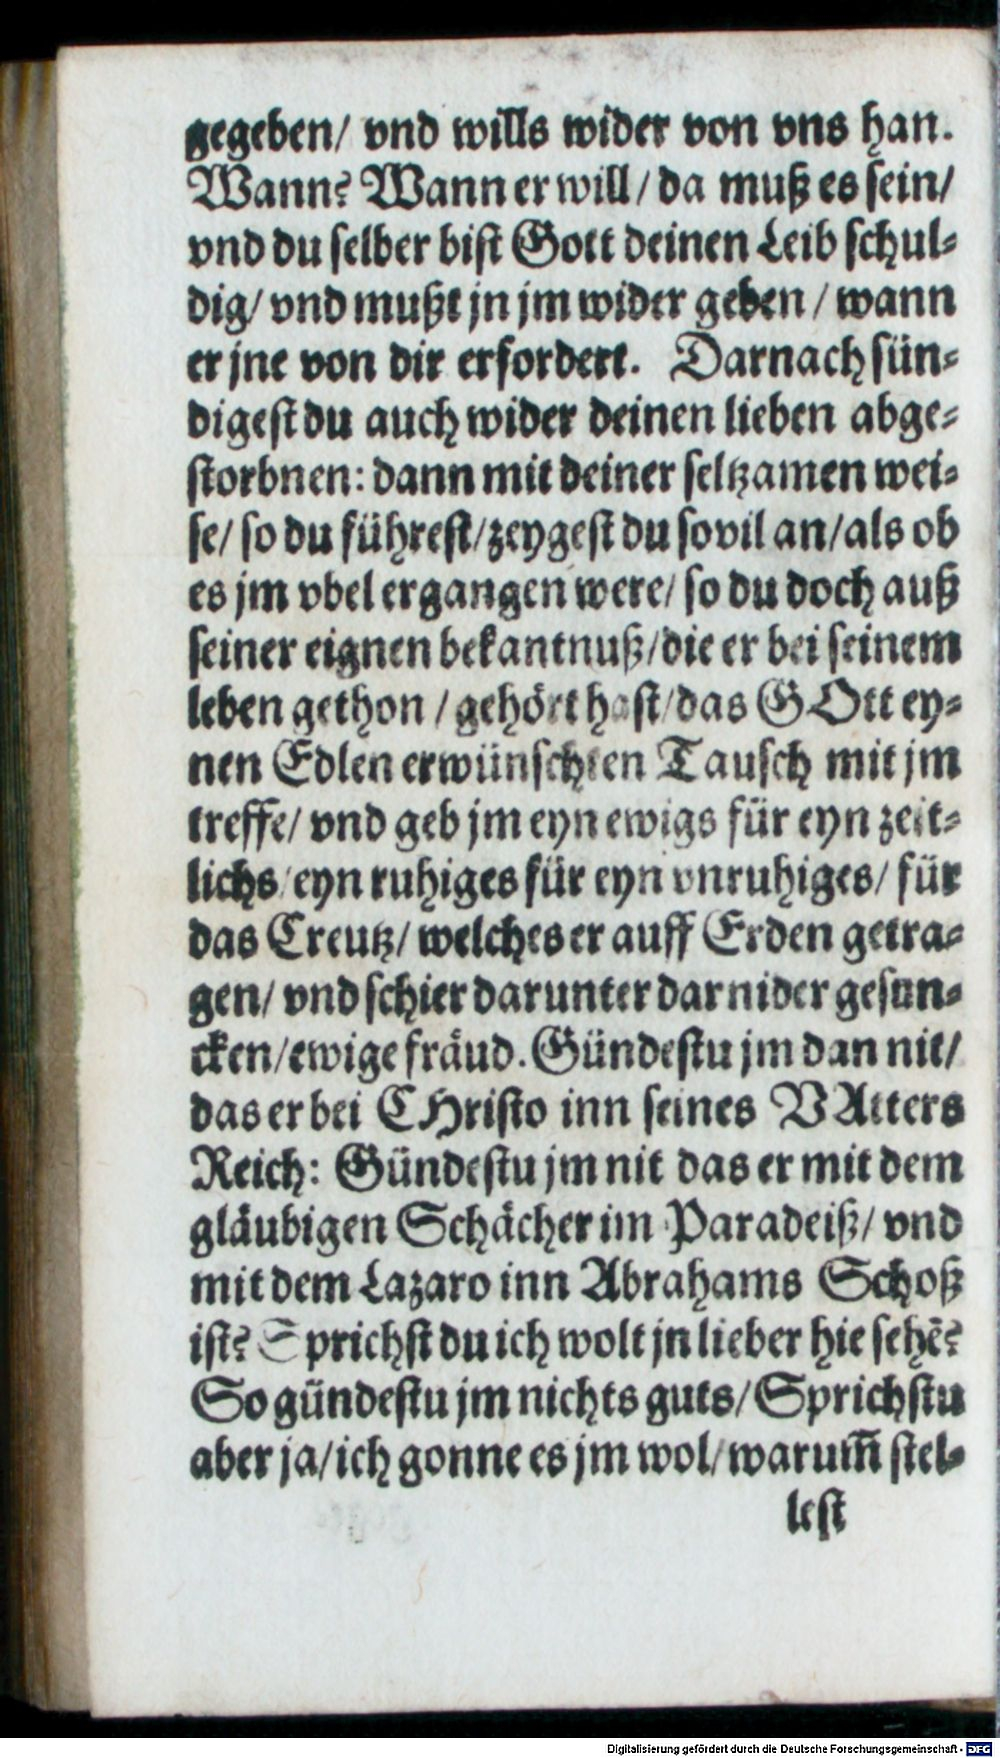 gegeben/ vnd wills wider von vns han.
Wann? Wann er will/ da muß es sein/
vnd du selber bist Gott deinen Leib schul⸗
dig/ vnd mußt jn jm wider geben/ wann
er jne von dir erfordert. Darnach sün⸗
digest du auch wider deinen lieben abge⸗
storbnen: dann mit deiner seltzamen wei⸗
se/ so du führest/ zeygest du sovil an/ als ob
es jm vbel ergangen were/ so du doch auß
seiner eignen bekantnuß/ die er bei seinem
leben gethon/ gehört hast/ das GOtt ey⸗
nen Edlen erwünschten Tausch mit jm
treffe/ vnd geb jm eyn ewigs für eyn zeit⸗
lichs/ eyn ruhiges für eyn vnruhiges/ für
das Creutz/ welches er auff Erden getra⸗
gen/ vnd schier darunter darnider gesun⸗
cken/ ewige fräud. Gündestu jm dan nit/
das er bei CHristo inn seines VAtters
Reich: Gündestu jm nit das er mit dem
gläubigen Schächer im Paradeiß/ vnd
mit dem Lazaro inn Abrahams Schoß
ist? Sprichst du ich wolt jn lieber hie sehē?
So gündestu jm nichts guts/ Sprichstu
aber ja/ ich gonne es jm wol/ warum̃ stel⸗
lest
Digitalisierung gefördert durch die Deutsche Forschungsgemeinschaft - DFG